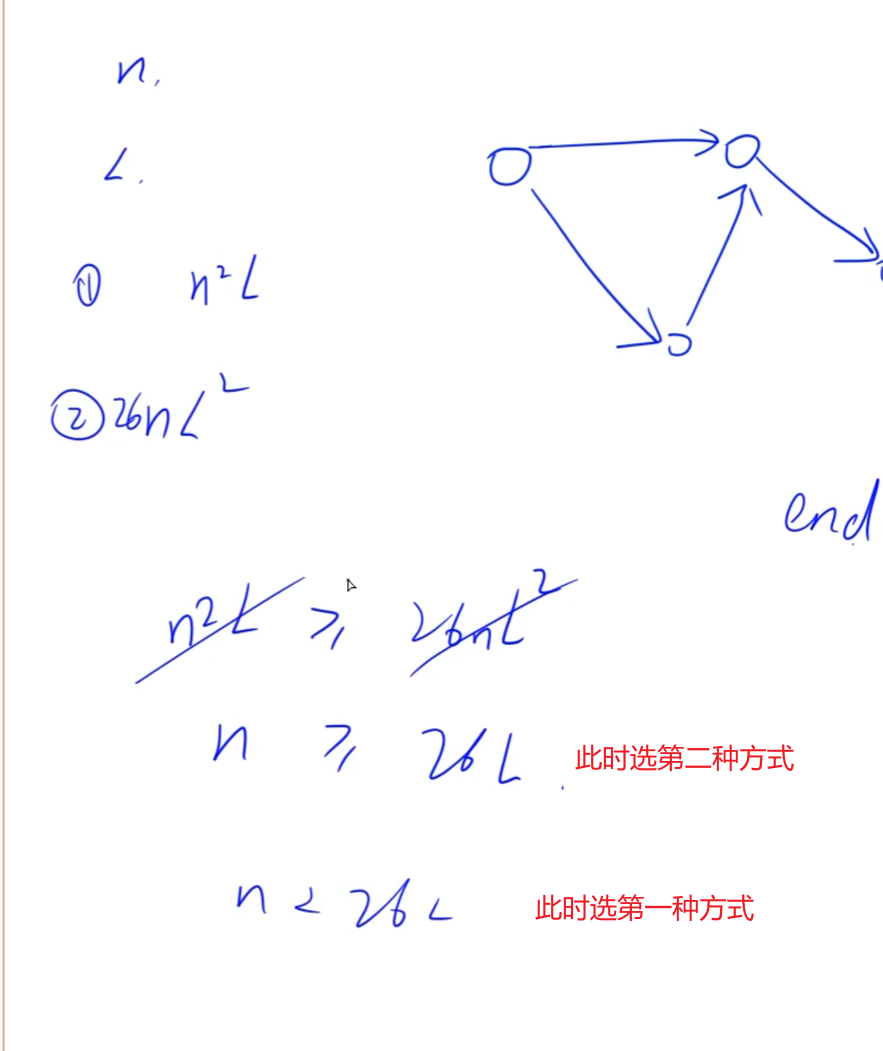 n.
L.
① n²L
② 26nL²
end
n²L ≥ 26nL²
n ≥ 26L. 此时选第二种方式
n < 26L 此时选第一种方式